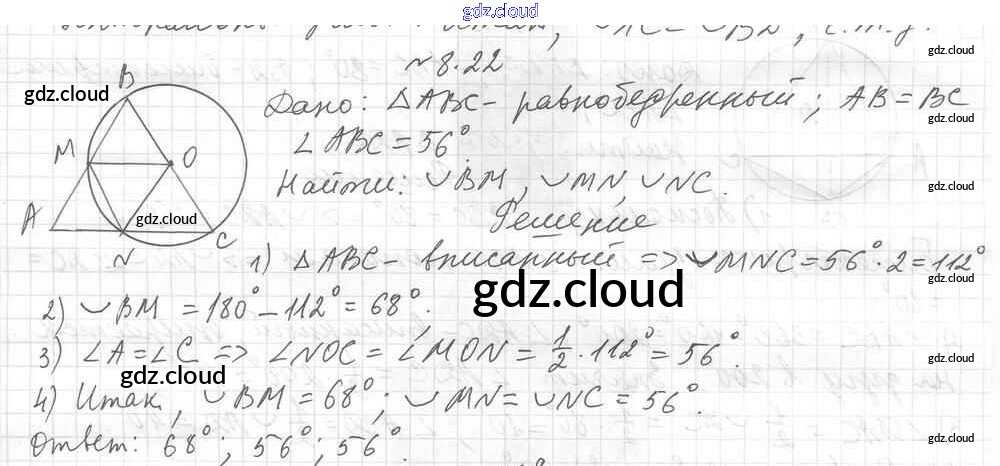 gdz.cloud
№8.22
Дано: △ABC - равнобедренный; AB = BC
∠ABC = 56°.
Найти: ◡BM, ◡MN, ◡NC.
Решение
B
M
O
A
N
C
1) △ABC - вписанный => ◡MNC = 56°·2 = 112°
2) ◡BM = 180° - 112° = 68°.
3) ∠A = ∠C => ∠NOC = ∠MON = 1/2 · 112° = 56°.
4) Итак, ◡BM = 68°; ◡MN = ◡NC = 56°.
Ответ: 68°; 56°; 56°.
gdz.cloud
gdz.cloud
gdz.cloud
gdz.cloud
gdz.cloud
gdz.cloud
gdz.cloud
gdz.cloud
gdz.cloud
gdz.cloud